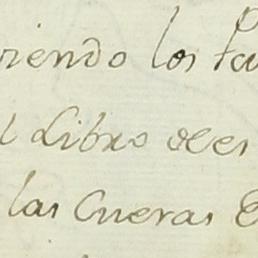 riendo los Pa
l Libro de es
las Cuevas